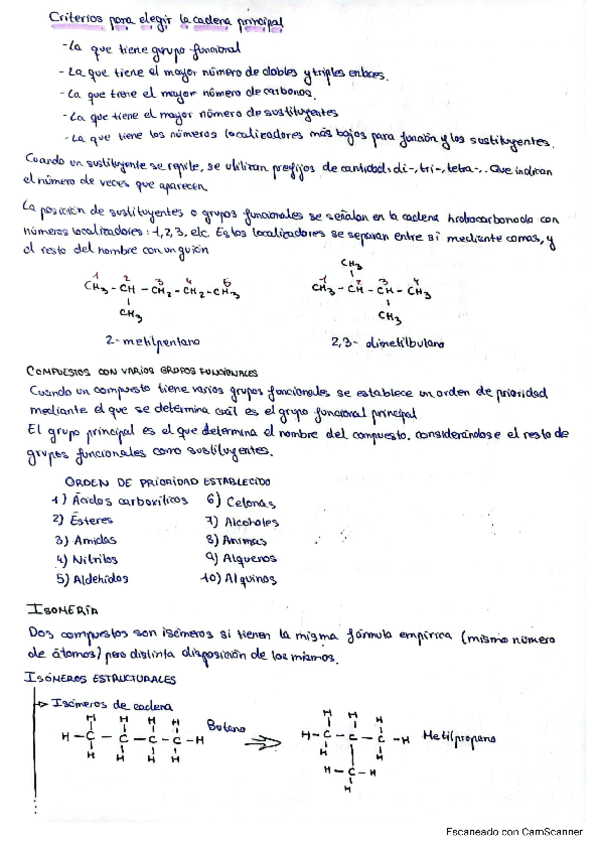 Criterios para elegir la cadena principal
-La que tiene grupo funcional
-La que tiene el mayor número de dobles y triples enlaces.
-La que tiene el mayor número de carbonos.
-La que tiene el mayor número de sustituyentes
-La que tiene los números localizadores más bajos para función y los sustituyentes.
Cuando un sustituyente se repite, se utilizan prefijos de cantidad: di-, tri-, tetra-... Que indican
el número de veces que aparecen.
La posición de sustituyentes o grupos funcionales se señalan en la cadena hidrocarbonada con
números localizadores: 1,2,3, etc. Estos localizadores se separan entre sí mediante comas, y
el resto del nombre con un guión
CH3
1 2 3 4 5
CH3 - CH - CH2 - CH2 - CH3
1 2 3 4
CH3 - CH - CH - CH3
CH3
CH3
2-metilpentano
2,3-dimetilbutano
COMPUESTOS CON VARIOS GRUPOS FUNCIONALES
Cuando un compuesto tiene varios grupos funcionales se establece un orden de prioridad
mediante el que se determina cuál es el grupo funcional principal
El grupo principal es el que determina el nombre del compuesto. considerándose el resto de
grupos funcionales como sustituyentes.
ORDEN DE PRIORIDAD ESTABLECIDO
1) Ácidos carboxílicos
2) Ésteres
3) Amidas
4) Nitrilos
5) Aldehídos
6) Cetonas
7) Alcoholes
8) Aminas
9) Alquenos
10) Alquinos
ISOMERÍA
Dos compuestos son isómeros si tienen la misma fórmula empírica (mismo número
de átomos) pero distinta disposición de los mismos.
ISÓMEROS ESTRUCTURALES
Isómeros de cadena
H H H H
H - C - C - C - C - H
H H H H
Butano
H H H
H - C - C - C - H
H H
H - C - H
H
Metilpropano
Escaneado con CamScanner